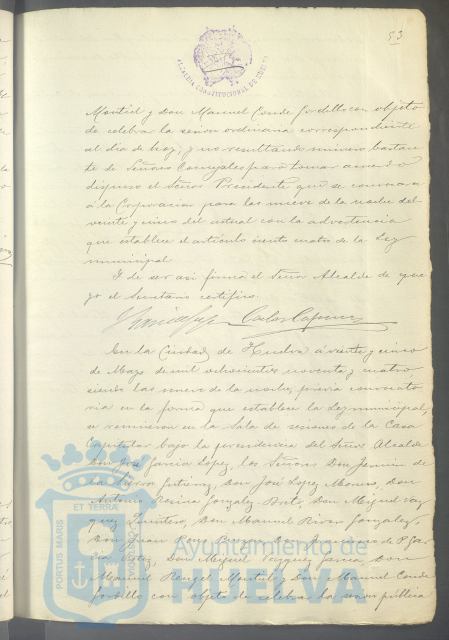 53
ALCALDIA CONSTITUCIONAL DE HUELVA
Montiel y Don Manuel Conde Gordillo con objeto
de celebrar la sesion ordinaria correspondiente
al dia de hoy, y no resultando número bastan-
te de Señores Concejales para tomar acuerdo
dispuso el Señor Presidente que se convocara
á la Corporacion para las nueve de la noche del
veinte y cinco del actual con la advertencia
que establece el artículo ciento cuatro de la Ley
municipal.
Y de ser asi firma el Señor Alcalde de que
yo el Secretario certifico.
En la Ciudad de Huelva á veinte y cinco
de Mayo de mil ochocientos noventa y cuatro
siendo las nueve de la noche, previa convocato-
ria en la forma que establece la Ley municipal,
se reunieron en la Sala de sesiones de la Casa
Capitular bajo la presidencia del Señor Alcalde
Don José Garcia Lopez, los Señores Don
la Gutierrez, Don José Lopez Don
Antonio Gonzalez Don Miguel Vaz
quez Quintero, Don Manuel Rivas Gonzalez,
Don Juan Don Francisco de P. Gar
cia Don Miguel Vazquez Garcia Don
Manuel Rangel Montiel y Don Manuel Conde
Gordillo con objeto de celebrar la sesion pública
PORTUS MARIS
ET TERRÆ
CUSTODIA
Ayuntamiento de
HUELVA